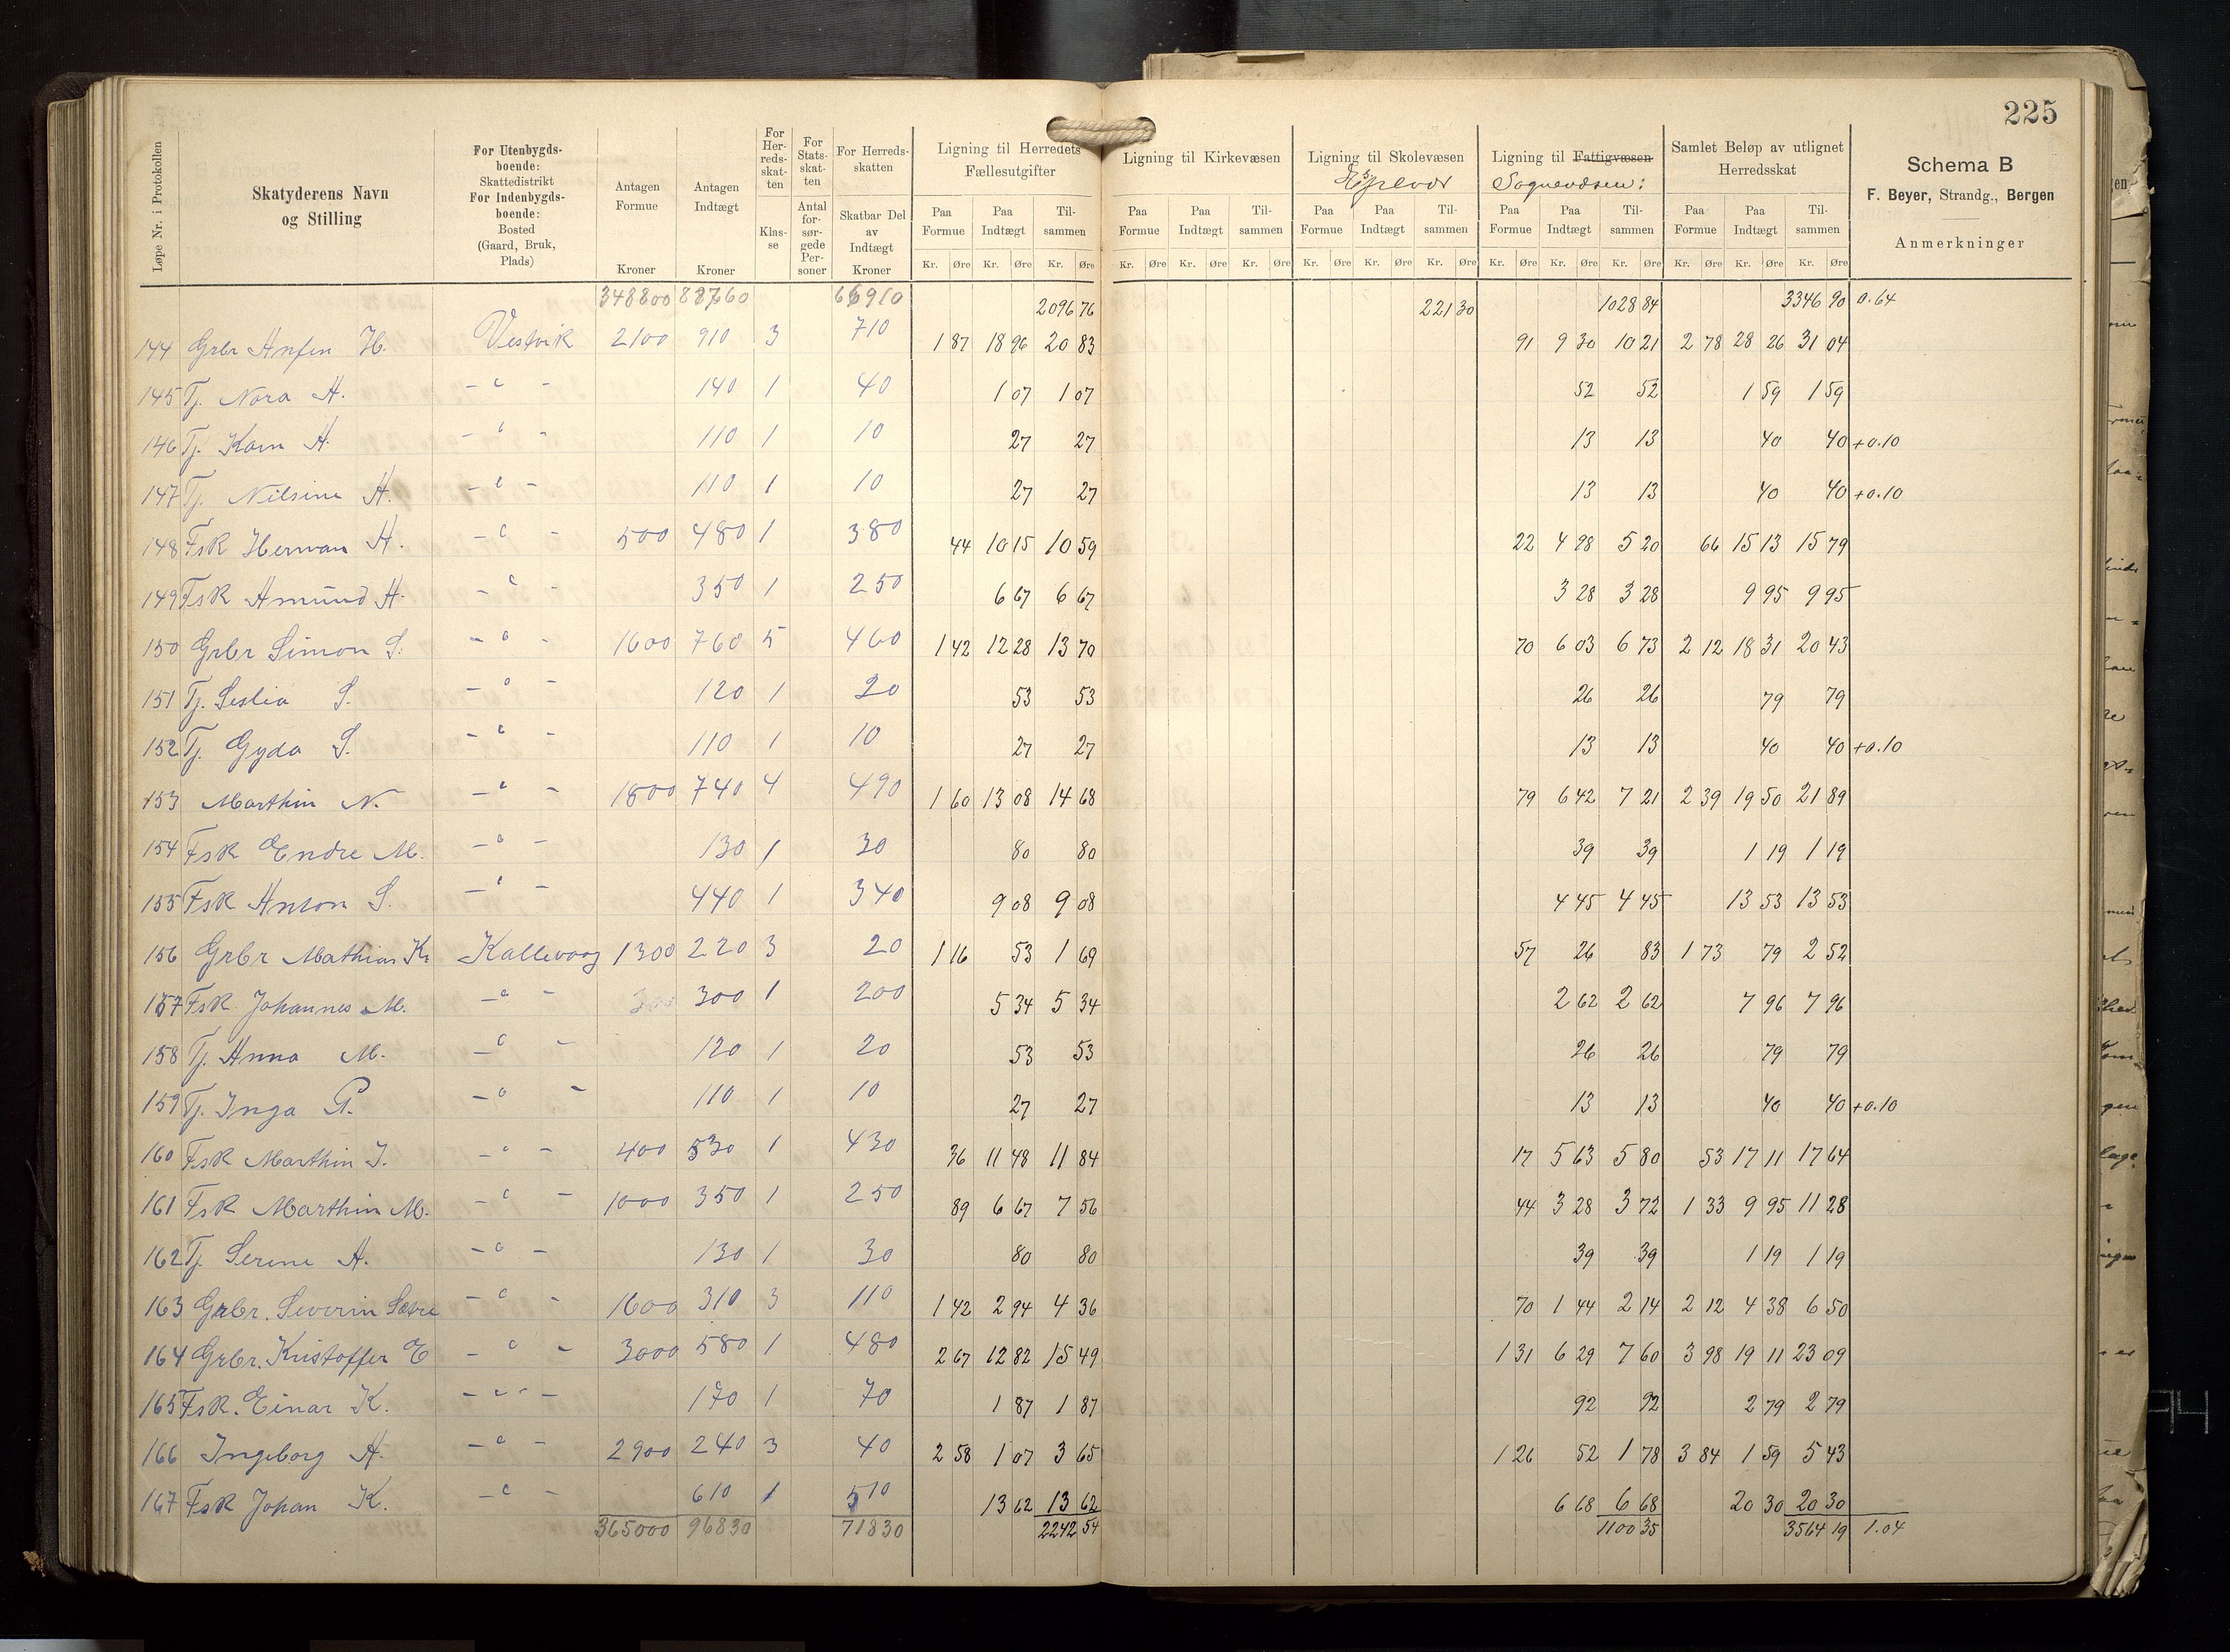 225
Løpe Nr. i Protokollen
Skatyderens Navn og Stilling
For Utenbygds-boende: Skattedistrikt For Indenbygds-boende: Bosted (Gaard, Bruk, Plads)
Antagen Formue Kroner
Antagen Indtægt Kroner
For Her-reds-skat-ten Klas-se
For Stats-skat-ten Antal for-sør-gede Per-soner
For Herreds-skatten Skatbar Del av Indtægt Kroner
Ligning til Herredets Fællesutgifter
Ligning til Kirkevæsen
Ligning til Skolevæsen
Ligning til Fattigvæsen
Sognevæsen:
Samlet Beløp av utlignet Herredsskat
Paa Formue Paa Indtægt Til-sammen Paa Formue Paa Indtægt Til-sammen Paa Formue Paa Indtægt Til-sammen Paa Formue Paa Indtægt Til-sammen Paa Formue Paa Indtægt Til-sammen
Kr. Øre Kr. Øre Kr. Øre Kr. Øre Kr. Øre Kr. Øre Kr. Øre Kr. Øre Kr. Øre Kr. Øre Kr. Øre Kr. Øre Kr. Øre Kr. Øre Kr. Øre
Schema B
F. Beyer, Strandg., Bergen
Anmerkninger
348800 66910 2096 76 221 30 1028 84 3346 90 0.64
144 Grbr Anfin H. Vestvik 2100 910 3 710 1 87 18 96 20 83 91 9 30 10 21 2 78 28 26 31 04
145 Tj. Nora H. - " - 140 1 40 1 07 1 07 52 52 1 59 1 59
146 Tj. Karn H. - " - 110 1 10 27 27 13 13 40 40 +0.10
147 Tj. Nilsine H. - " - 110 1 10 27 27 13 13 40 40 +0.10
148 Fsk Herman H. - " - 500 480 1 380 44 10 15 10 59 22 4 98 5 20 66 15 13 15 79
149 Fsk Amund H. - " - 350 1 250 6 67 6 67 3 28 3 28 9 95 9 95
150 Grbr Simon S. - " - 1600 760 5 460 1 42 12 28 13 70 70 6 03 6 73 2 12 18 31 20 43
151 Tj. S. - " - 120 1 20 53 53 26 26 79 79
152 Tj. Gyda S. - " - 110 1 10 27 27 13 13 40 40 +0.10
153 Marthin N. - " - 1800 740 4 490 1 60 13 08 14 68 79 6 42 7 21 2 39 19 50 21 89
154 Fsk Endre M. - " - 130 1 30 80 80 39 39 1 19 1 19
155 Fsk Anton S. - " - 440 1 340 9 08 9 08 4 45 4 45 13 53 13 53
156 Grbr Mathias K. Kallevaag 1300 220 3 20 1 16 53 1 69 57 26 83 1 73 79 2 52
157 Fsk Johannes M. - " - 300 1 200 5 34 5 34 2 62 2 62 7 96 7 96
158 Tj. Anna M. - " - 120 1 20 53 53 26 26 79 79
159 Tj. Inga P. - " - 110 1 10 27 27 13 13 40 40 +0.10
160 Fsk Marthin J. - " - 400 530 1 430 36 11 48 11 84 17 5 63 5 80 53 17 11 17 64
161 Fsk Marthin M. - " - 1000 350 1 250 89 6 67 7 56 44 3 28 3 72 1 33 9 95 11 28
162 Tj. Serine H. - " - 130 1 30 80 80 39 39 1 19 1 19
163 Grbr. Severin Sætre - " - 1600 310 3 110 1 42 2 94 4 36 70 1 44 2 14 2 12 4 38 6 50
164 Grbr. Kristoffer E - " - 3000 580 1 480 2 67 12 82 15 49 1 31 6 29 7 60 3 98 19 11 23 09
165 Fsk. Einar K. - " - 170 1 70 1 87 1 87 92 92 2 79 2 79
166 Ingeborg H. - " - 2900 240 3 40 2 58 1 07 3 65 1 26 52 1 78 3 84 1 59 5 43
167 Fsk Johan K. - " - 610 1 510 13 62 13 62 6 68 6 68 20 30 20 30
365000 96830 71830 2242 54 1100 35 3564 19 1.04